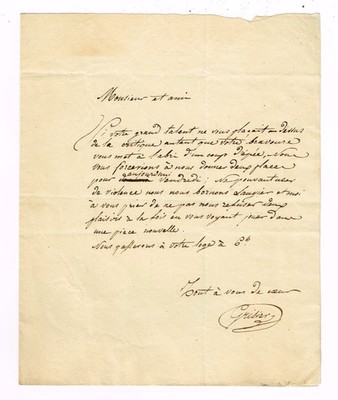 Monsieur et ami
Si votre grand talent ne vous plaçait au dessus
de la critique autant que votre bravoure
vous met à l'abri d'un coup d'épée, Nous
vous forcerions à nous donner deux places
pour aujourd'hui Vendredi : Ne pouvant user
de violence nous nous bornons Lauvier et moi
à vous prier de ne pas nous refuser deux
plaisirs à la fois en vous voyant jouer dans
une pièce nouvelle.
Nous passerons à votre loge à 6h
Tout à vous de cœur